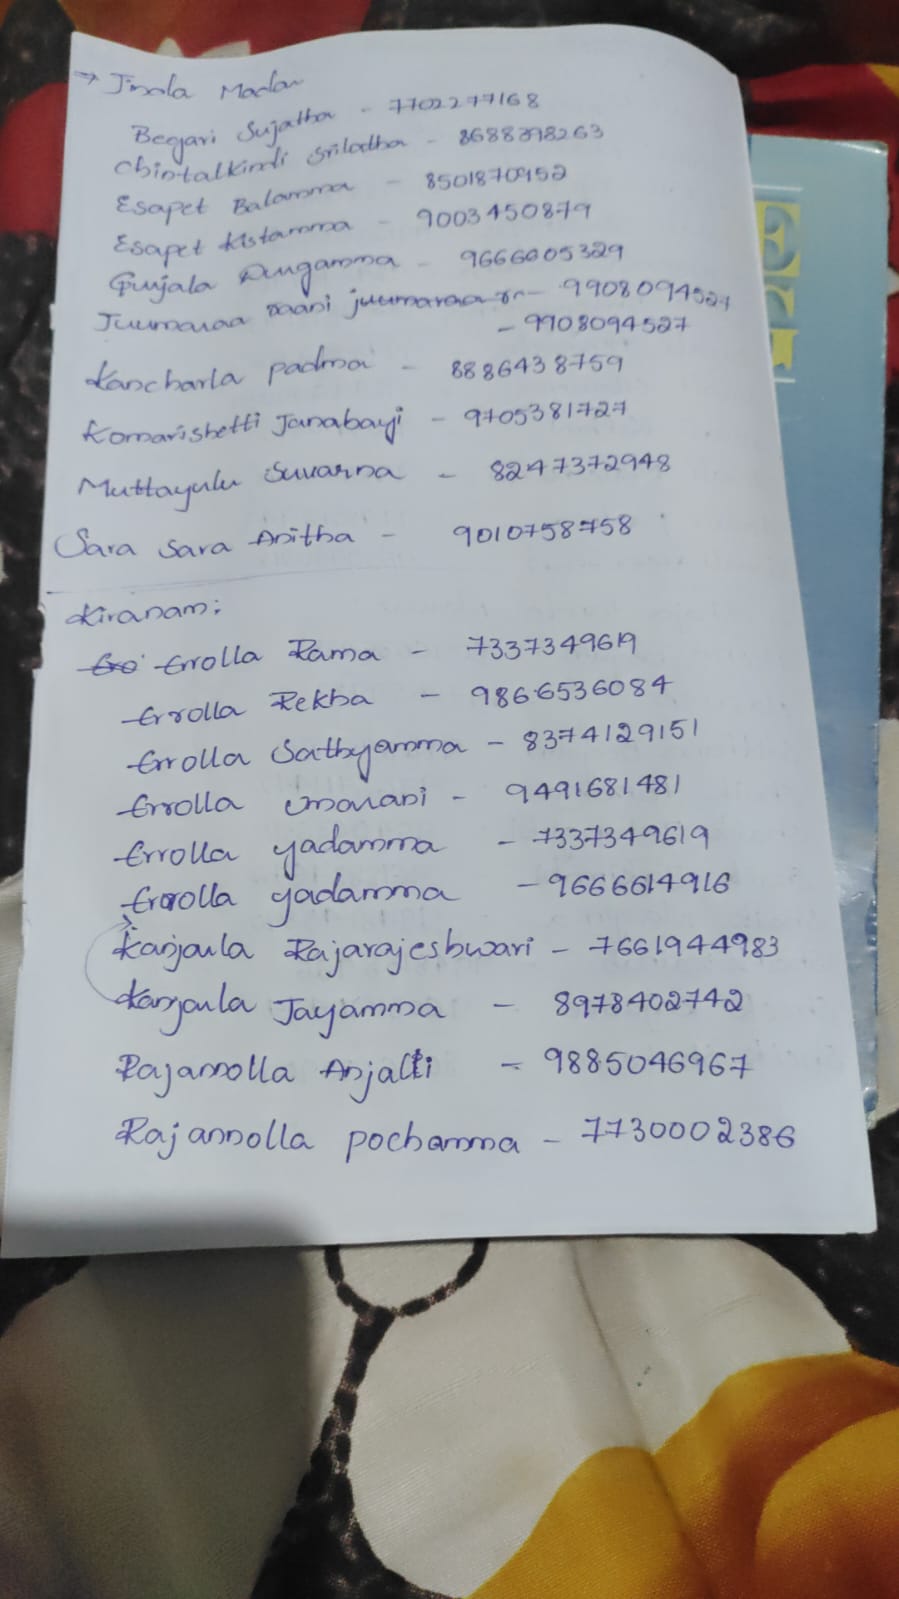 → Jinnala Madan
Begari Sujatha - 7702277168
Chintalkindi Sriladha - 8688398263
Esapet Balamma - 8501870952
Esapet Kistamma - 9003450879
Gunjala Rengamma - 9666605329
Juumaraa raani juumaraa - 9908094527
- 9908094527
Kancharla padma - 8886438759
Komarishetti Janabayi - 9705381727
Muttayulu Suvarna - 8247372948
Sara Sara Anitha - 9010758758
Kiranam:
Errolla Rama - 7337349619
Errolla Rekha - 9866536084
Errolla Sathyamma - 8374129151
Errolla Umarani - 9491681481
Errolla yadamma - 7337349619
Errolla yadamma - 9666614916
Kanjarla Rajarajeshwari - 7661944983
Kanjarla Jayamma - 8978402742
Rajannolla Anjali - 9885046967
Rajannolla pochamma - 7730002386